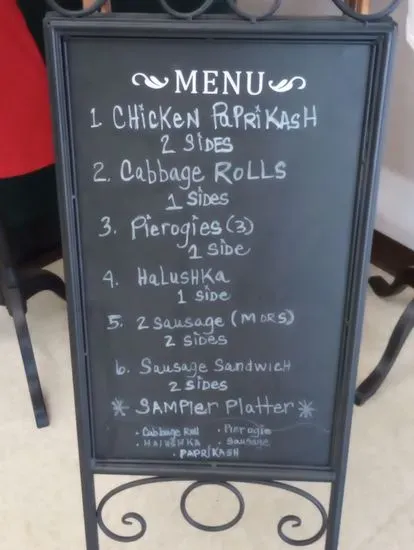 MENU
1. CHICKEN PAPRIKASH
2 SIDES
2. Cabbage ROLLS
1 SIDES
3. Pierogies (3)
1 Side
4. HALUSHKA
1 Side
5. 2 Sausage (M OR S)
2 sides
6. Sausage SANDWICH
2 SIDES
* SAMPler Platter *
• Cabbage Roll • Pierogie
• HALUSHKA • Sausage
• PAPRIKASH